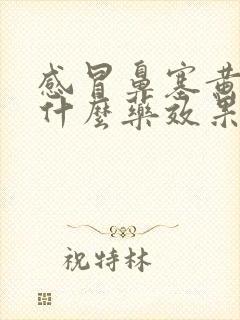 感冒鼻塞黃
什麼藥效果
祝特林